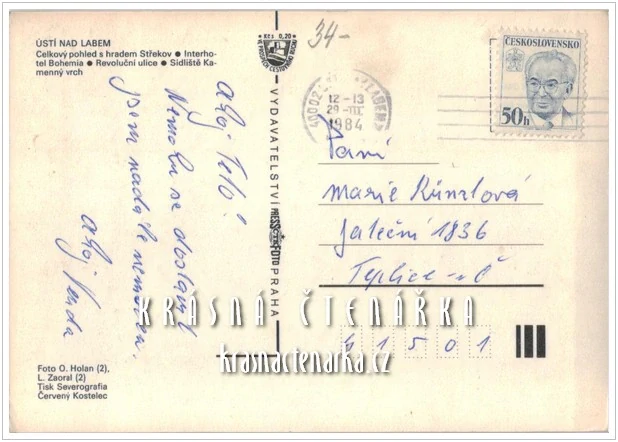 ÚSTÍ NAD LABEM
Celkový pohled s hradem Střekov • Interho-
tel Bohemia • Revoluční ulice • Sídliště Ka-
menný vrch
Ahoj Teto!
Nemohu se dostavit
jsem nadále nemocen.
Ahoj Venda
Foto O. Holan (2),
L. Zaoral (2)
Tisk Severografia
Červený Kostelec
Kčs 0,20
VE PROSPĚCH CESTOVNÍHO RUCHU
VYDAVATELSTVÍ PRESSFOTO PRAHA
34-
40002
12-13
29-III
1984
ČESKOSLOVENSKO
50h
Paní
Marie Künzlová
Jateční 1836
Teplice
41501
KRÁSNÁ ČTENÁŘKA
krasnactenarka.cz